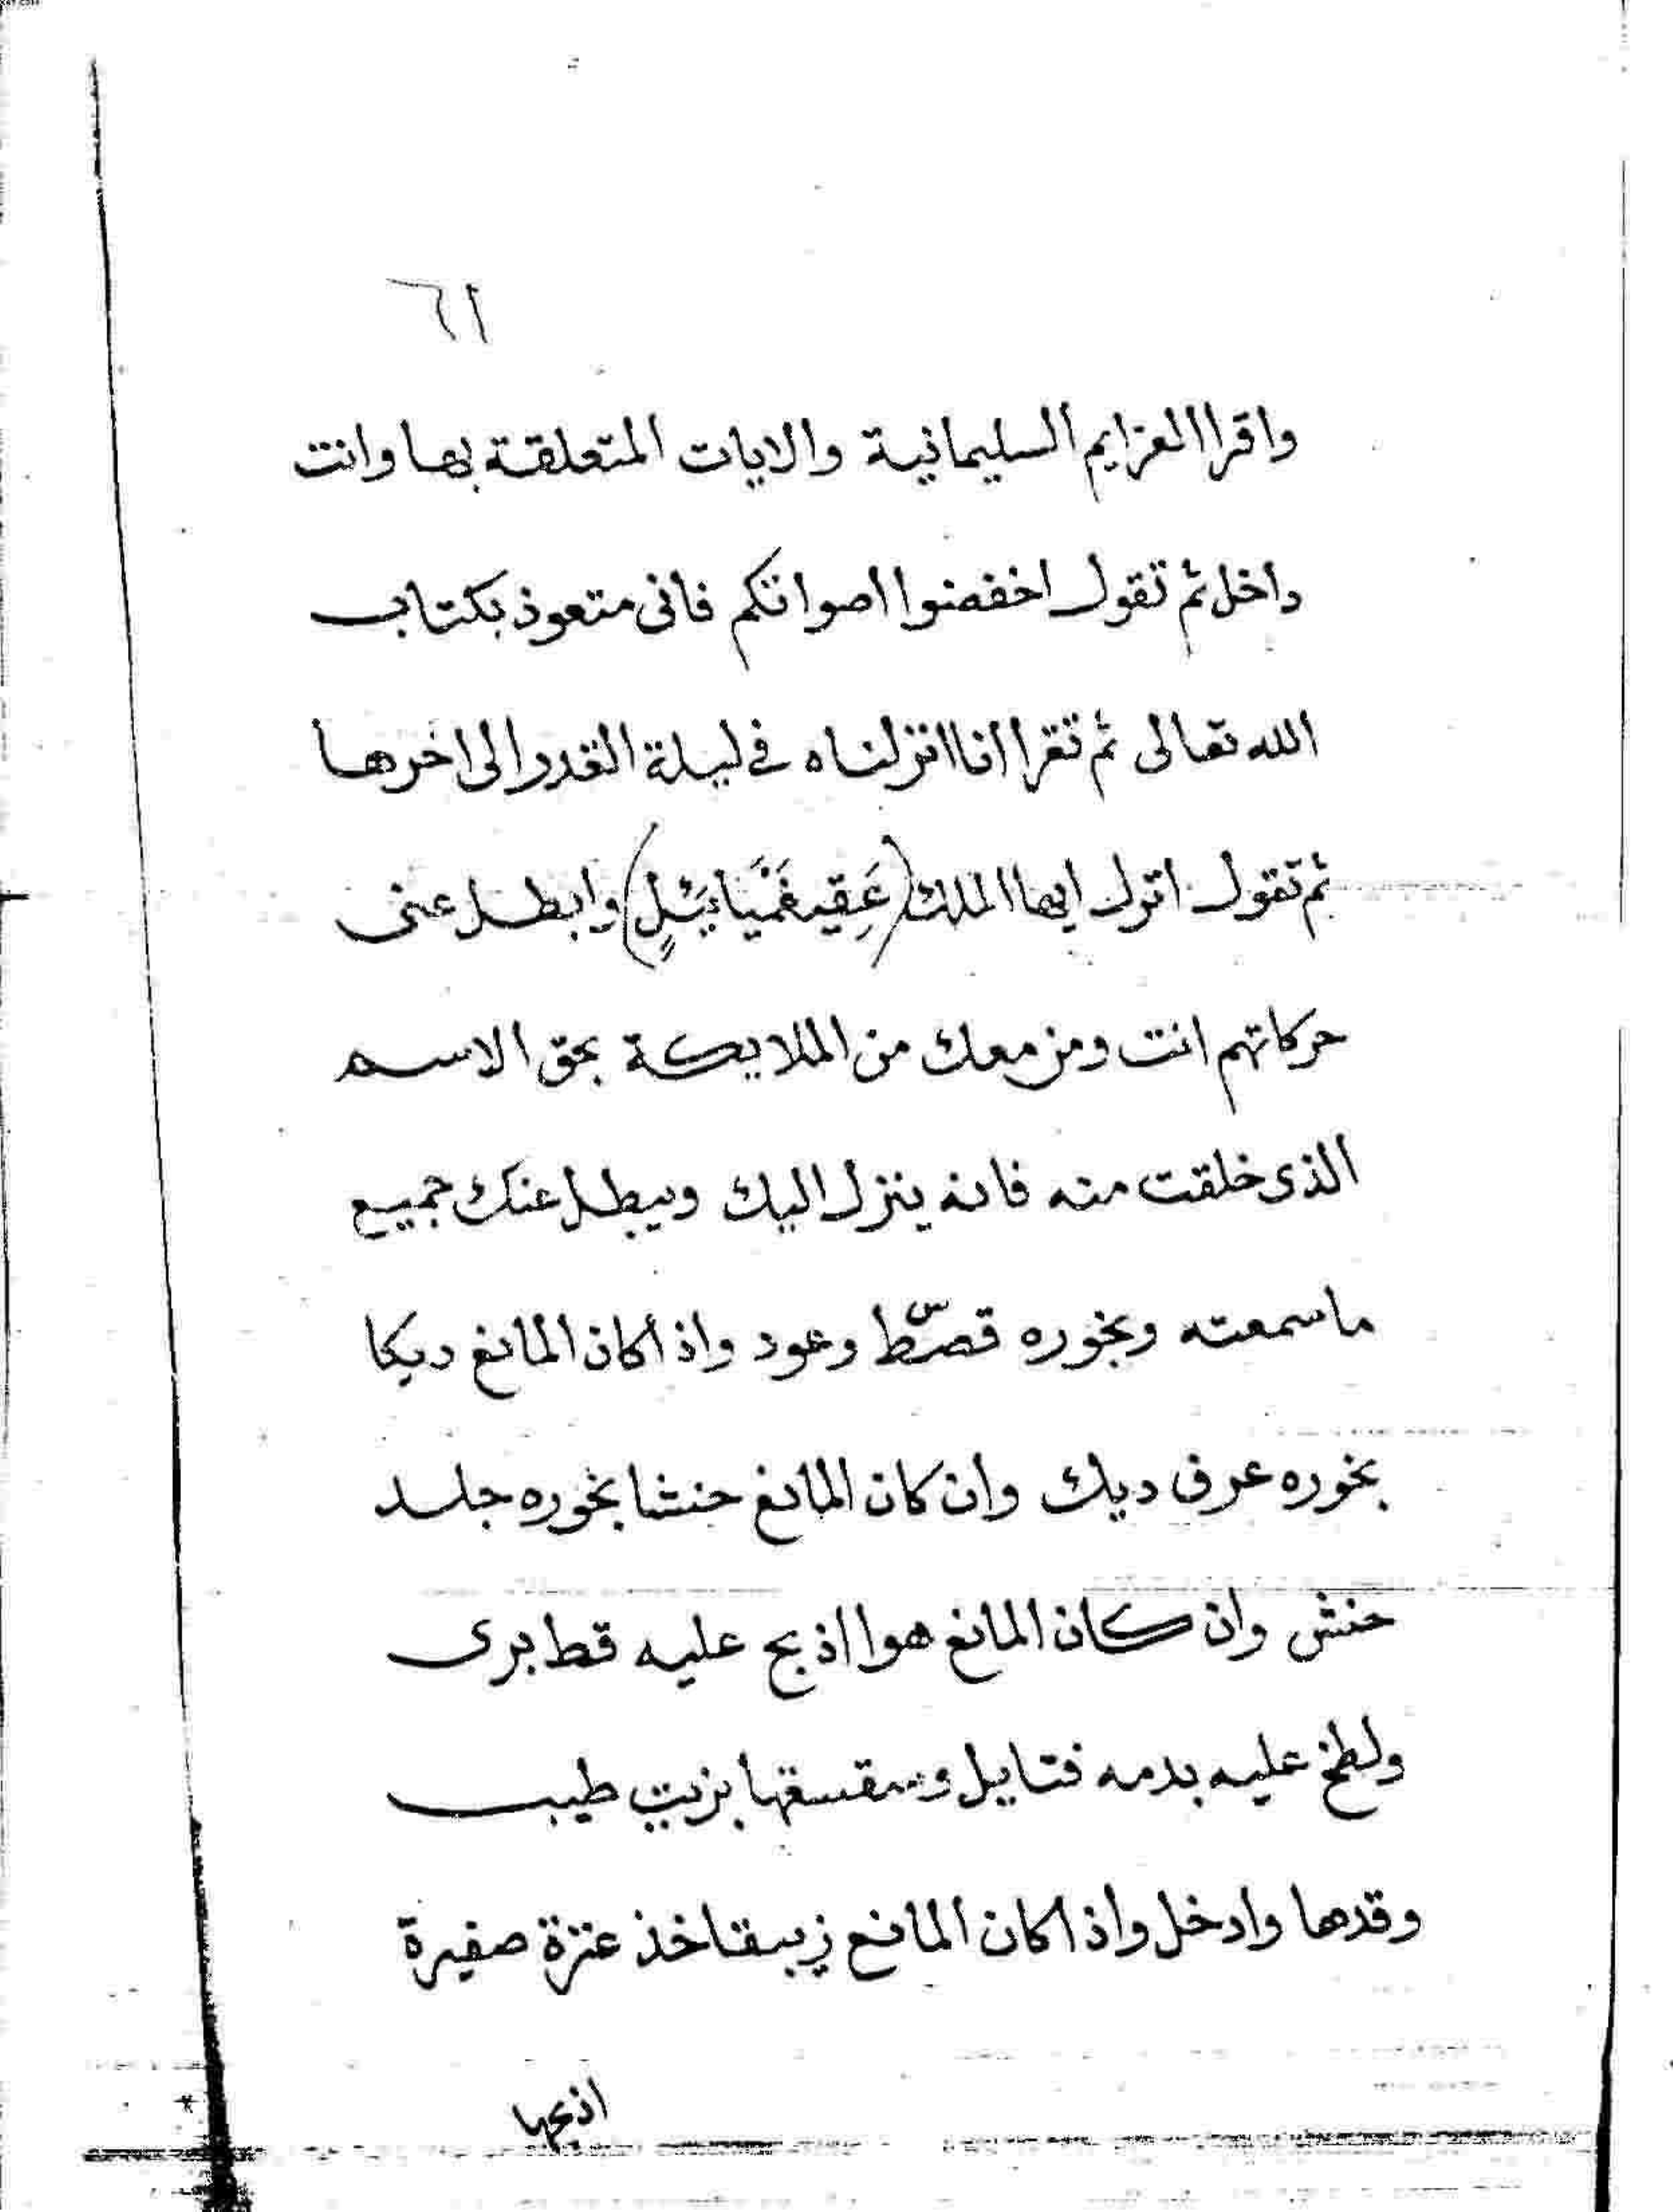 ٦١
واقرا العزايم السليمانية والايات المتعلقة بها وانت
داخل ثم تقول اخفضوا اصواتكم فانى متعوذ بكتاب
الله تعالى ثم تقرا انا انزلناه في ليلة القدر الى اخرها
ثم تقول انزل ايها الملك (عَقِيغَمْيَائِيلٍ) وابطل عنى
حركاتهم انت ومن معك من الملايكة بحق الاسم
الذى خلقت منه فانه ينزل اليك ويبطل عنك جميع
ما سمعته وبخوره قصط وعود واذا كان المانع ديكا
بخوره عرف ديك وان كان المانع حنشا بخوره جلد
حنش وان كان المانع هوا اذبح عليه قط برى
ولطخ عليه بدمه فتايل وسقسقها بزيت طيب
وقدها وادخل واذا كان المانع زيبقا خذ عنزة صغيرة
اذبحها